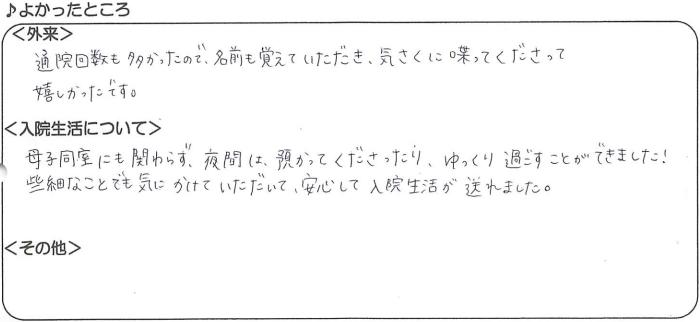 ♪よかったところ
＜外来＞
通院回数も多かったので、名前も覚えていただき、気さくに喋ってくださって
嬉しかったです。
＜入院生活について＞
母子同室にも関わらず、夜間は、預かってくださったり、ゆっくり過ごすことができました！
些細なことでも気にかけていただいて、安心して入院生活が送れました。
＜その他＞